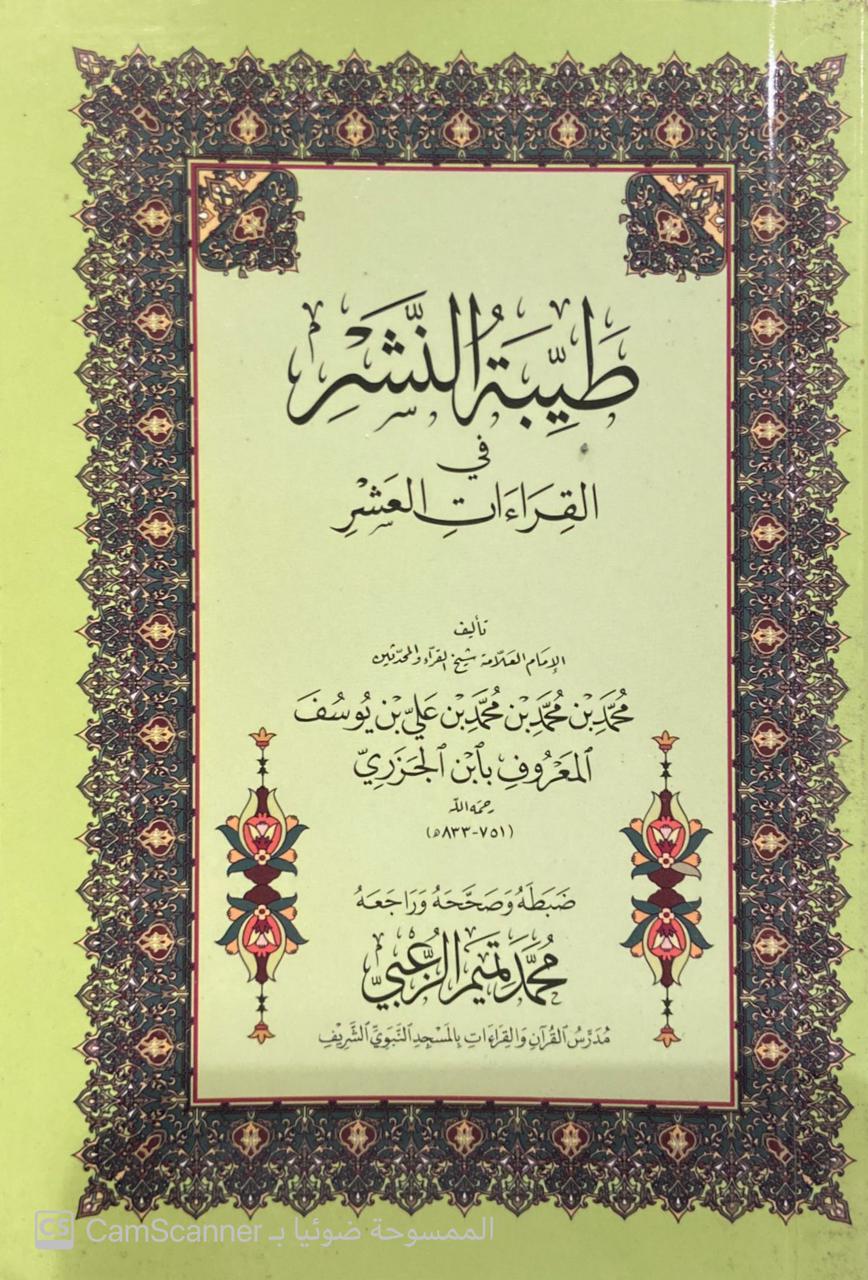 طَيِّبَةُ النَّشْرِ
في
القِرَاءَاتِ العَشْرِ
تأليف
الإمام العلامة شيخ القراء والمحدثين
مُحَمَّدِ بْنِ مُحَمَّدِ بْنِ مُحَمَّدِ بْنِ عَلِيِّ بْنِ يُوسُفَ
المَعْرُوفِ بِابْنِ الْجَزَرِيِّ
رحمه الله
(٧٥١-٨٣٣هـ)
ضَبَطَهُ وَصَحَّحَهُ وَرَاجَعَهُ
مُحَمَّد تَمِيم الزُّعْبِي
مُدَرِّسُ القُرْآنِ وَالقِرَاءَاتِ بِالمَسْجِدِ النَّبَوِيِّ الشَّرِيفِ
CS الممسوحة ضوئيا بـ CamScanner